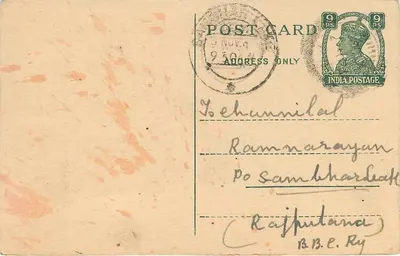 POST CARD
ADDRESS ONLY
9 PS 9 PS
INDIA POSTAGE
Ramnarayan
Po Sambhar
(Rajputana)
B.B.C. Ry